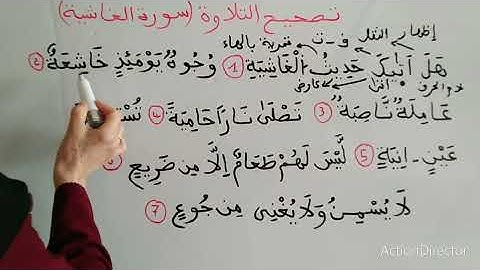 تصحيح التلاوة (سورة الغاشية)
هَلْ أَتَىٰكَ حَدِيثُ الْغَاشِيَةِ ① وُجُوهٌ يَوْمَئِذٍ خَاشِعَةٌ ②
عَامِلَةٌ نَّاصِبَةٌ ③ تَصْلَىٰ نَارًا حَامِيَةً ④
عَيْنٍ ـ انِيَةٍ ⑤ لَّيْسَ لَهُمْ طَعَامٌ إِلَّا مِن ضَرِيعٍ
لَا يُسْمِنُ وَلَا يُغْنِى مِن جُوعٍ ⑦
ActionDirector